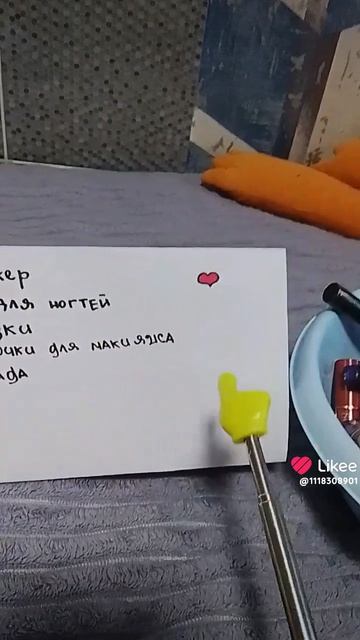 кер
для ногтей
жки
очки для макияжа
ада
Likee
@1118308901